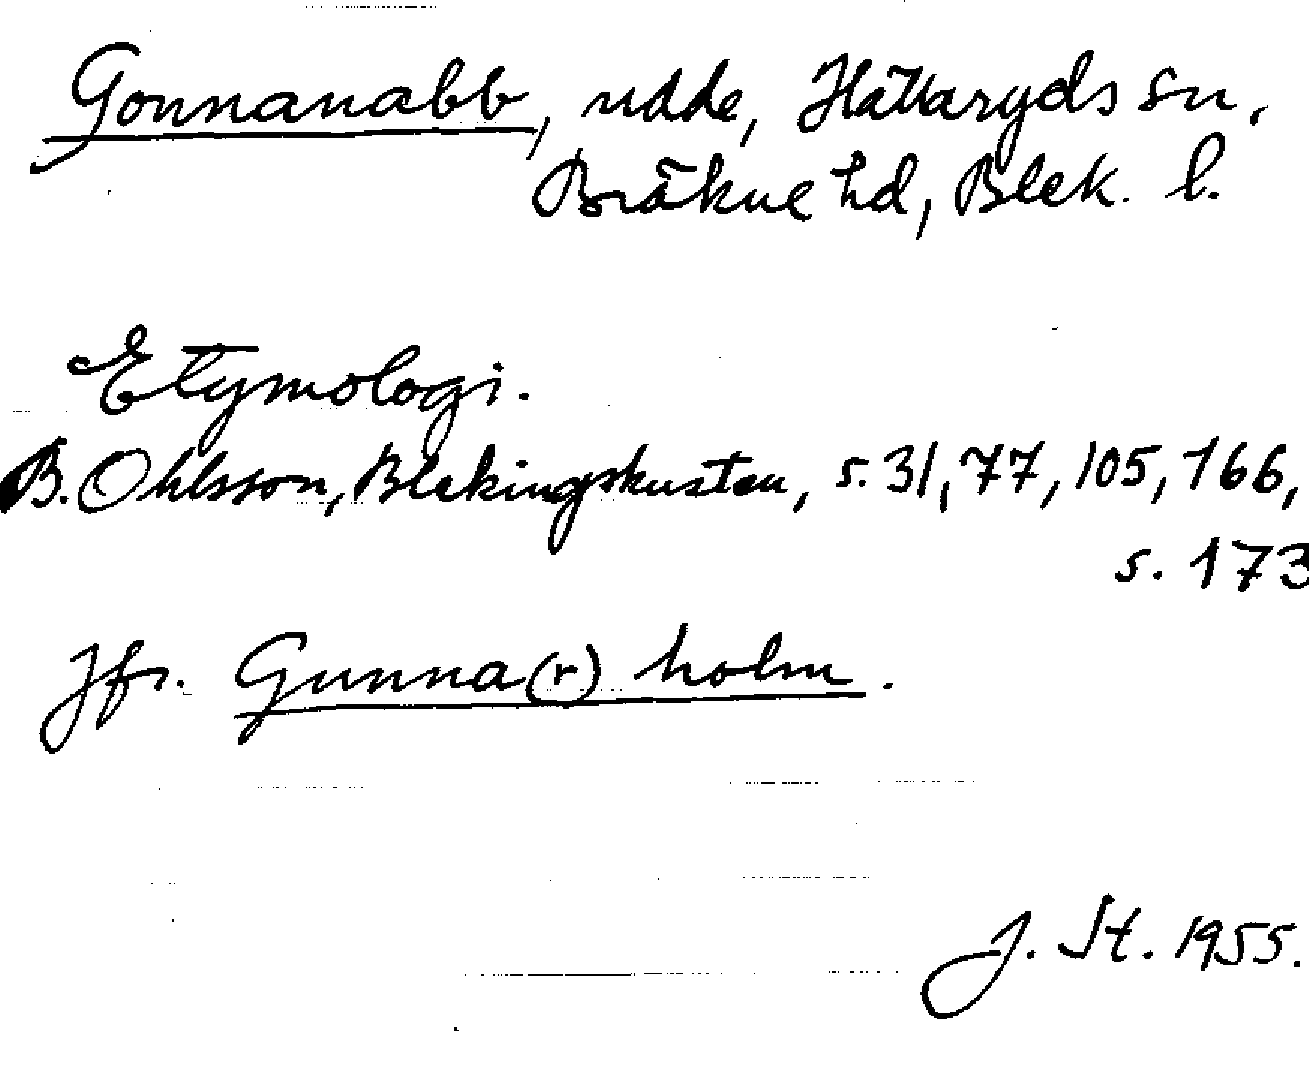 Gonnanabb, udde, Hällaryds sn,
Bräkne hd, Blek. l.
Etymologi.
B. Ohlsson, Blekingskusten, s. 31, 77, 105, 166,
s. 173
Jfr. Gunna(r) holm.
J. St. 1955.